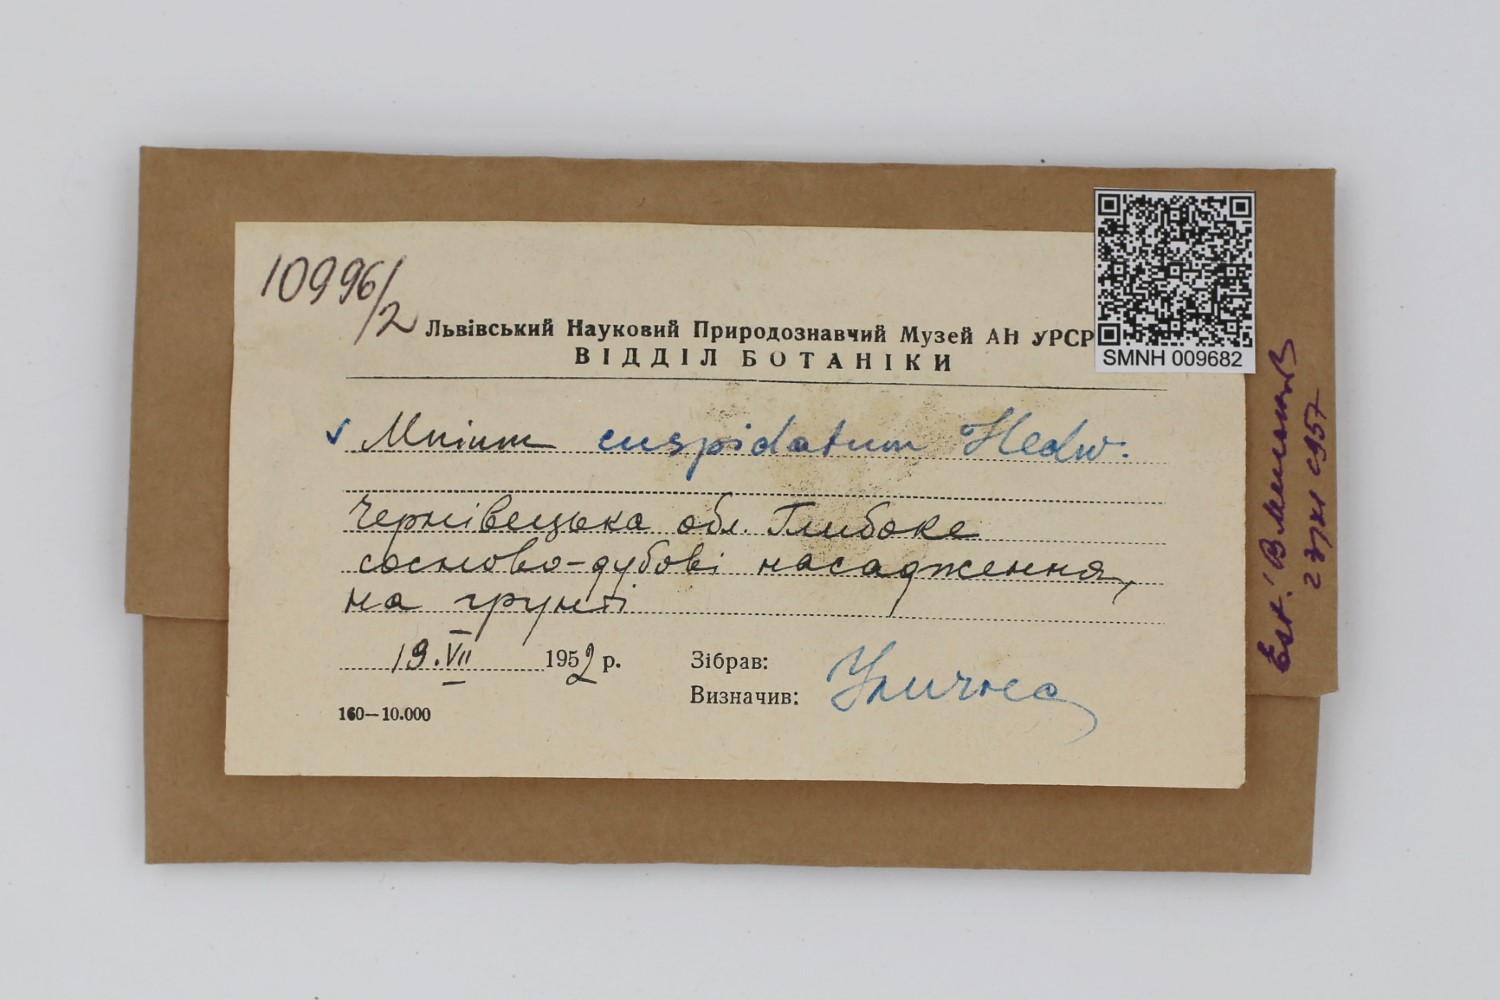 10996/2
Львівський Науковий Природознавчий Музей АН УРСР
ВІДДІЛ БОТАНІКИ
SMNH 009682
✓ Mnium cuspidatum Hedw.
Чернівецька обл. Глибоке
сосново-дубові насадження,
на грунті
19.VII 1952 р.
Зібрав:
Визначив: Улична
160—10.000
Est!
1957